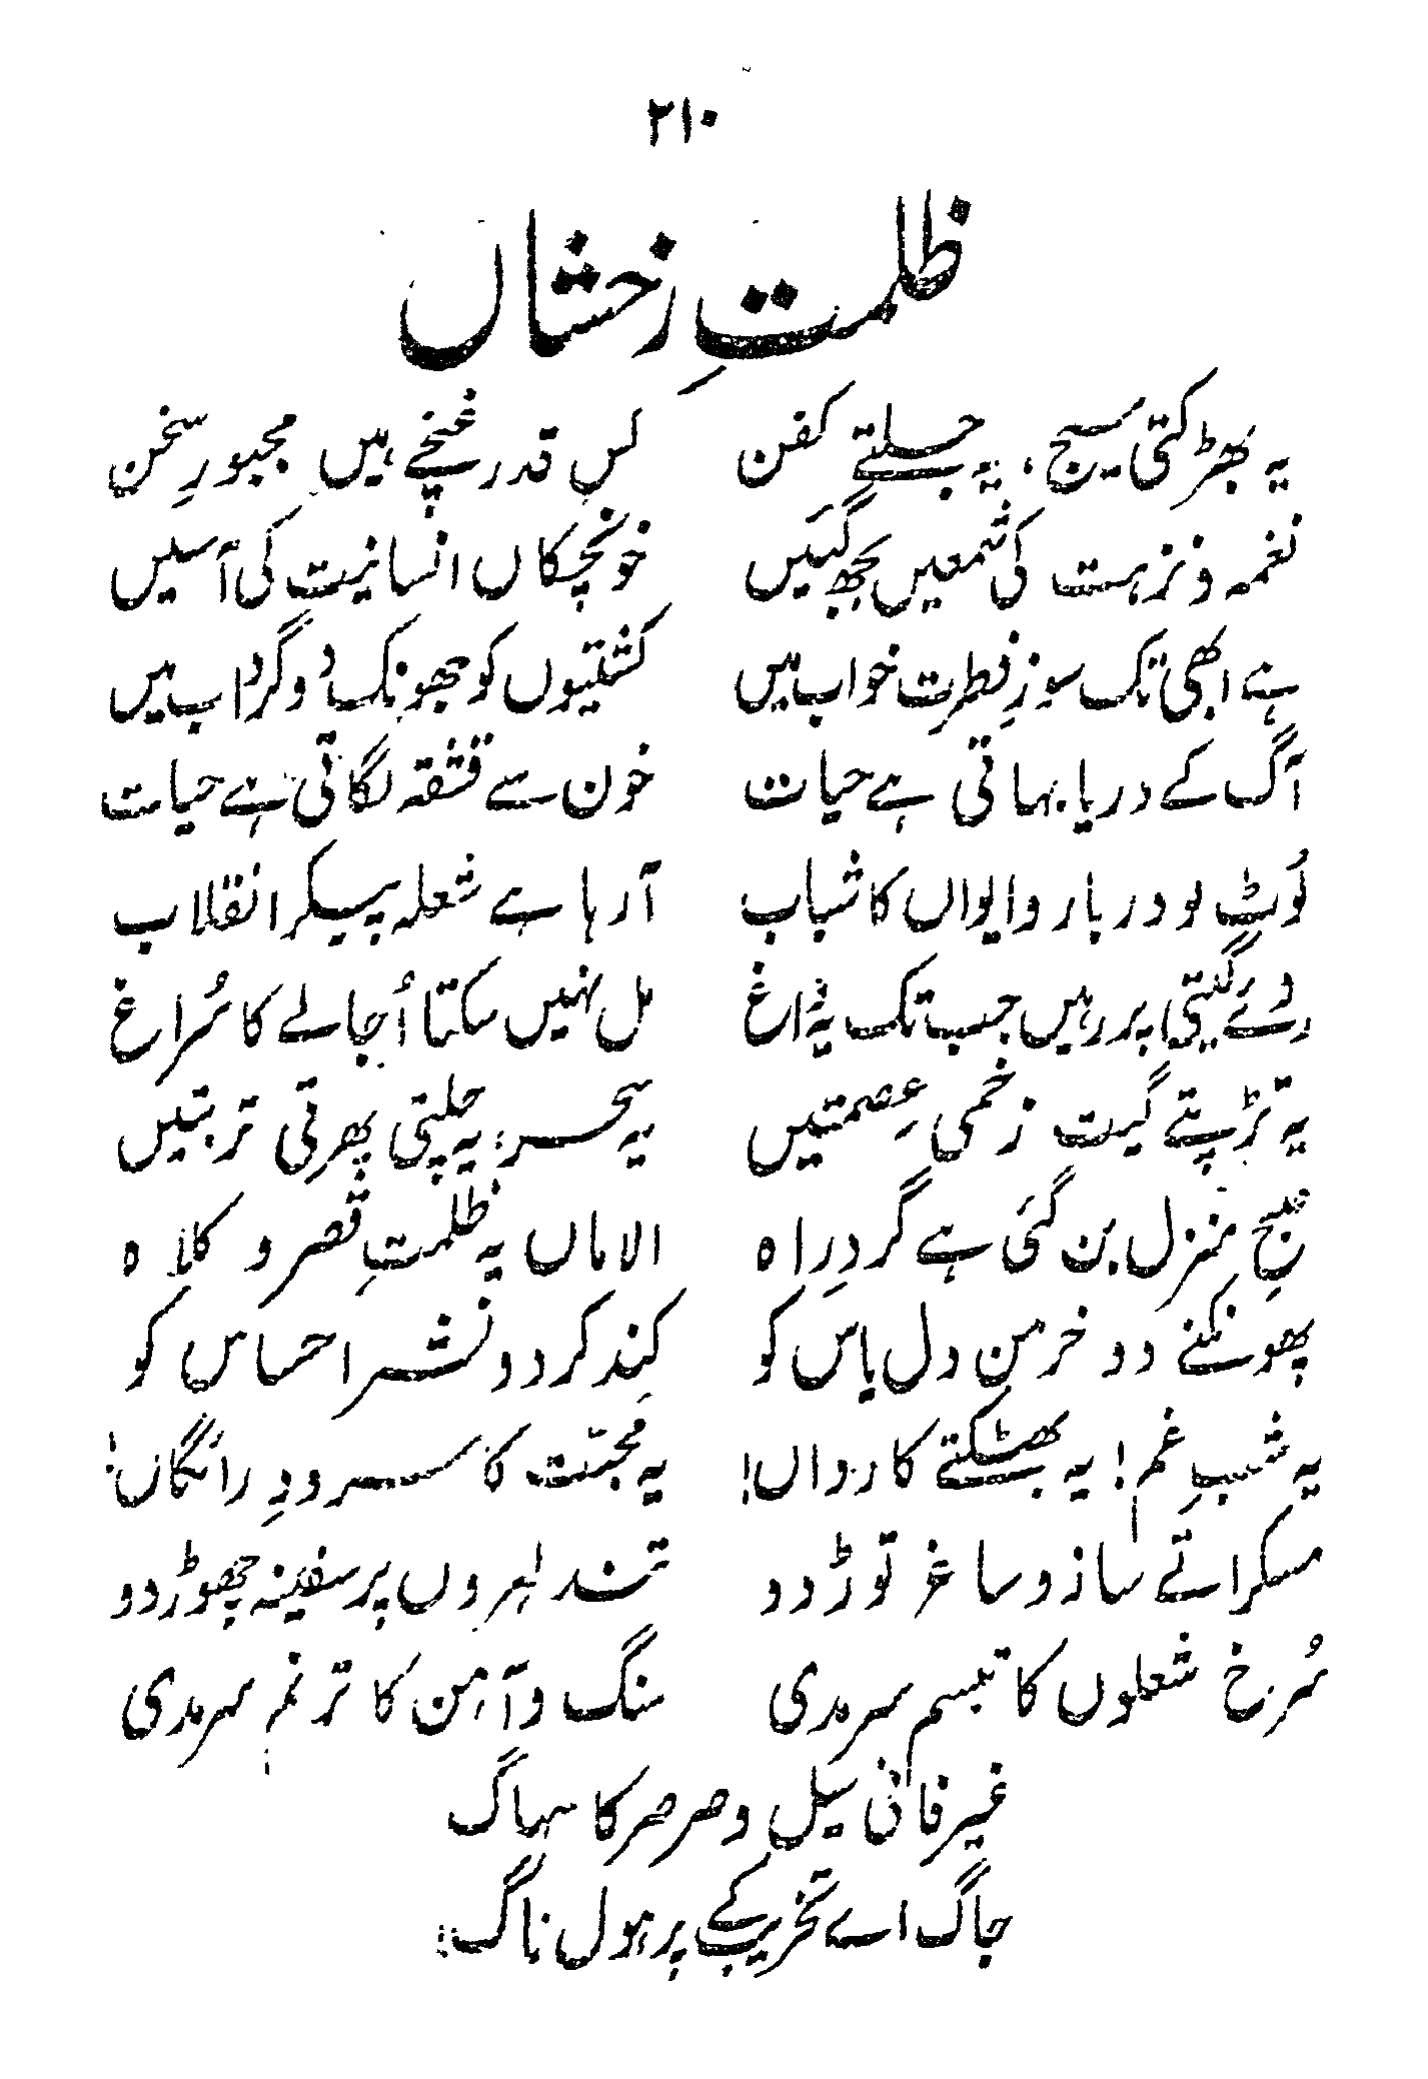 ۲۱۰
ظلمتِ زخشاں
یہ بھڑکتی سیج، یہ جلتے کفن کس قدر غنچے ہیں مجبورِ سخن
نغمہ و نزہت کی شمعیں بجھ گئیں خونچکاں انسانیت کی آستیں
ہے ابھی تک سوزِ فطرت خواب میں کشتیوں کو جھونک دو گرداب میں
آگ کے دریا بہاتی ہے حیات خون سے قشقہ لگاتی ہے حیات
لُوٹ لو دربار و ایواں کا شباب آ رہا ہے شعلہ پیکر انقلاب
روئے گیتی پر رہیں جب تک یہ داغ مل نہیں سکتا اُجالے کا سُراغ
یہ تڑپتے گیت زخمی عِصمتیں یہ سحر، یہ چلتی پھرتی تربتیں
صبحِ منزل بن گئی ہے گردِ راہ الاماں یہ ظلمتِ قصر و کلاہ
پھونکنے دو خرمنِ دل یاس کو کند کر دو نشتر احساس کو
یہ شبِ غم! یہ بھٹکتے کارواں! یہ محبّت کا سرودِ رائگاں!
مسکراتے ساز و ساغر توڑ دو تند لہروں پر سفینہ چھوڑ دو
سُرخ شعلوں کا تبسم سرمدی سنگ و آہن کا ترنم سرمدی
غیر فانی سیل و صرصر کا سہاگ
جاگ اے تخریب کے پرہول ناگ!